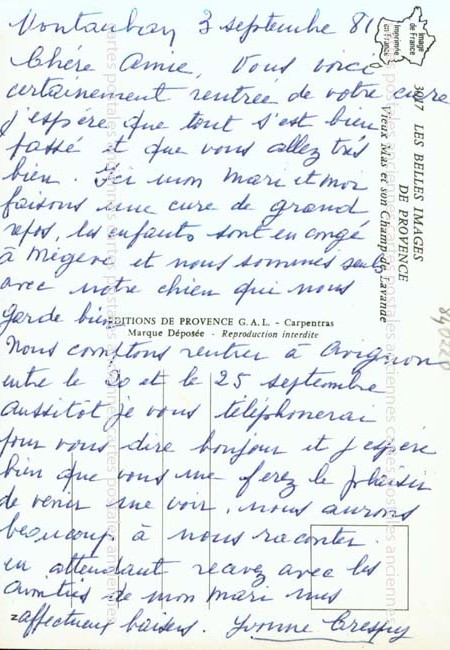 Montauban 3 septembre 81
Chère Amie, Vous voici
certainement rentrée de votre cure
j'espère que tout s'est bien
passé et que vous allez très
bien. Ici mon mari et moi
faisons une cure de grand
repos, les enfants sont en congé
à Mégève et nous sommes seuls
avec notre chien qui nous
garde bien
Nous comptons rentrer à Avignon
entre le 20 et le 25 septembre
aussitôt je vous téléphonerai
pour vous dire bonjour et j'espère
bien que vous me ferez le plaisir
de venir me voir. nous aurons
beaucoup à nous raconter.
en attendant recevez avec les
amitiés de mon mari mes
affectueux baisers. Yvonne Crespy
EDITIONS DE PROVENCE G.A.L. - Carpentras
Marque Déposée - Reproduction interdite
Image
de France
Imprimée
en France
3017 LES BELLES IMAGES
DE PROVENCE
Vieux Mas et son Champ de Lavande